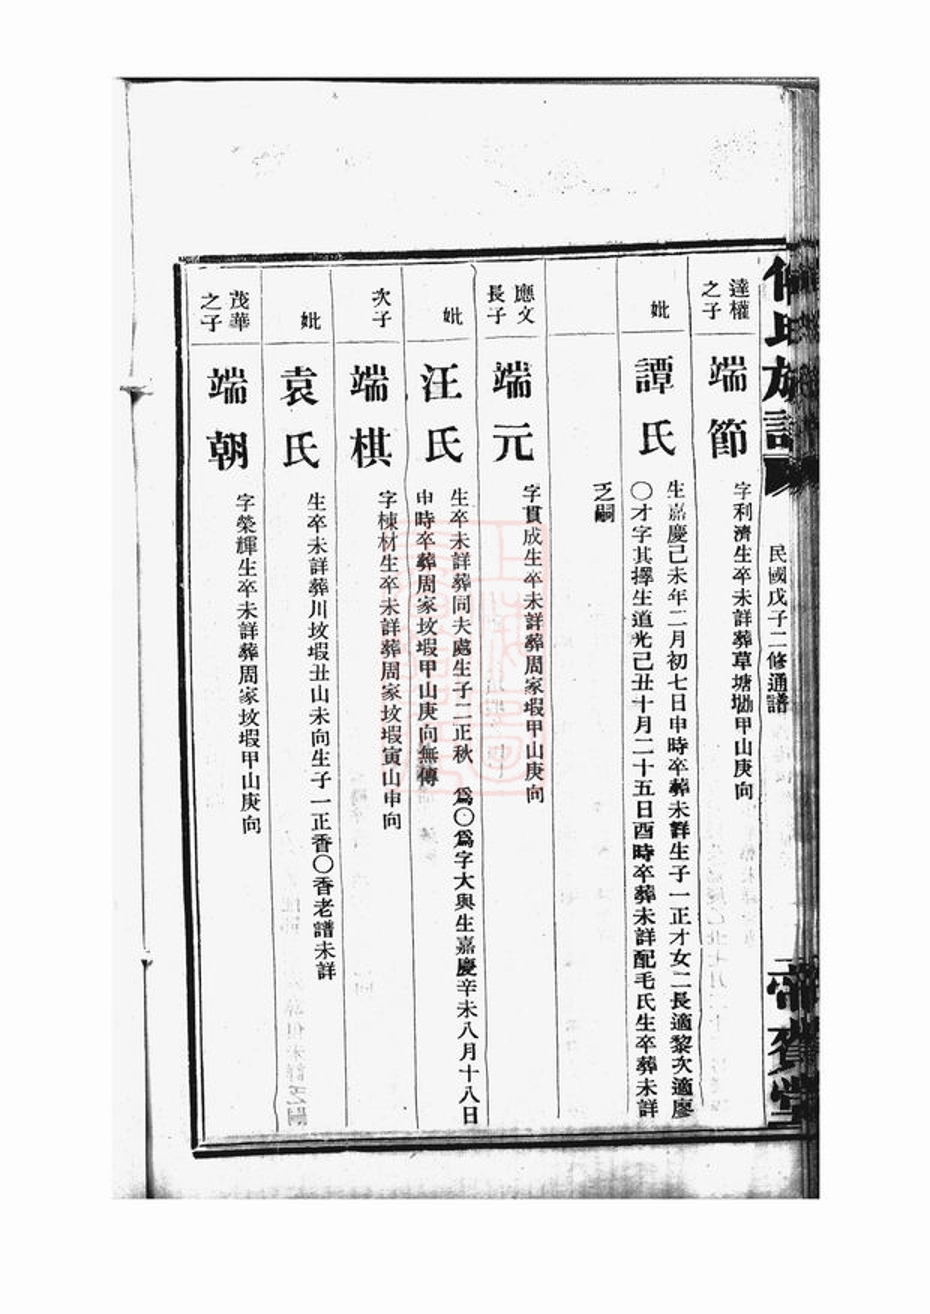 氏族譜
民國戊子二修通譜
帝賚堂
達權
之子
端節
字利濟生卒未詳葬草塘坳甲山庚向
妣
譚氏
生嘉慶己未年二月初七日申時卒葬未詳生子一正才女二長適黎次適廖
〇才字其擇生道光己丑十月二十五日酉時卒葬未詳配毛氏生卒葬未詳
乏嗣
應文
長子
端元
字貫成生卒未詳葬周家塅甲山庚向
妣
汪氏
生卒未詳葬同夫處生子二正秋 為〇為字大與生嘉慶辛未八月十八日
申時卒葬周家坟塅甲山庚向無傳
次子
端棋
字棟材生卒未詳葬周家坟塅寅山申向
妣
袁氏
生卒未詳葬川坟塅丑山未向生子一正香〇香老譜未詳
茂華
之子
端朝
字榮輝生卒未詳葬周家坟塅甲山庚向